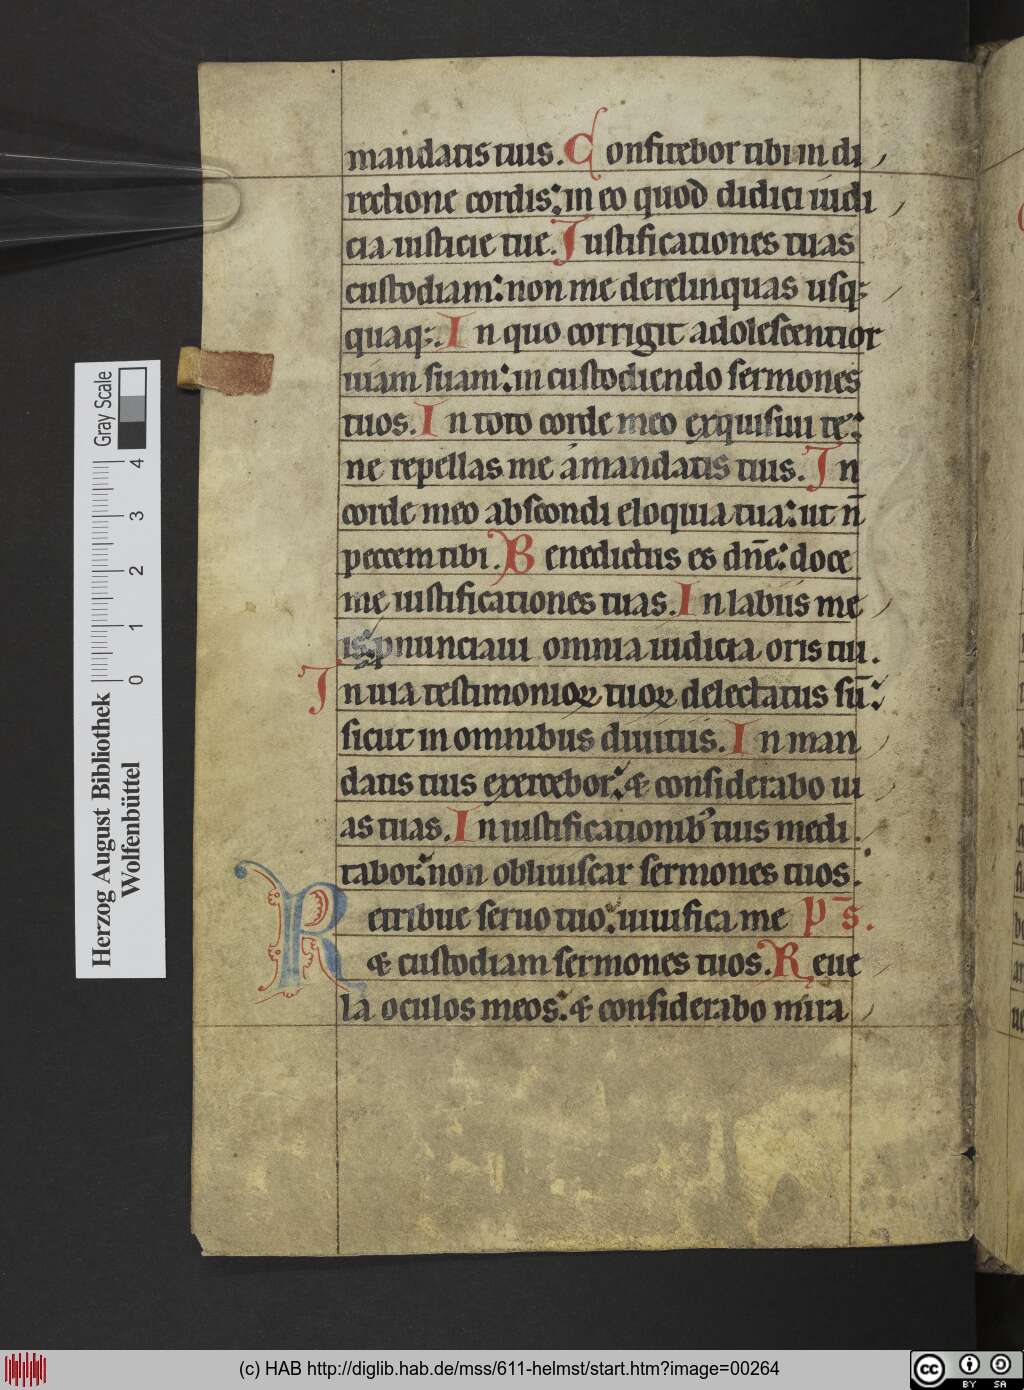 mandatis tuis. Confitebor tibi in di
rectione cordis: in eo quod didici iudi
cia iusticie tue. Iustificationes tuas
custodiam: non me derelinquas usq;
quaq;. In quo corrigit adolescentior
uiam suam: in custodiendo sermones
tuos. In toto corde meo exquisiui te:
ne repellas me a mandatis tuis. In
corde meo abscondi eloquia tua: ut n̄
peccem tibi. Benedictus es dn̄e: doce
me iustificationes tuas. In labiis me
is pnunciaui omnia iudicia oris tui.
In uia testimonioꝝ tuoꝝ delectatus sū:
sicut in omnibus diuitiis. In man
datis tuis exercebor: & considerabo ui
as tuas. In iustificationib᷒ tuis medi
tabor: non obliuiscar sermones tuos.
Retribue seruo tuo: uiuifica me p̄s.
& custodiam sermones tuos. Reue
la oculos meos: & considerabo mira
Gray Scale
0 1 2 3 4
Herzog August Bibliothek
Wolfenbüttel
(c) HAB http://diglib.hab.de/mss/611-helmst/start.htm?image=00264
cc BY SA